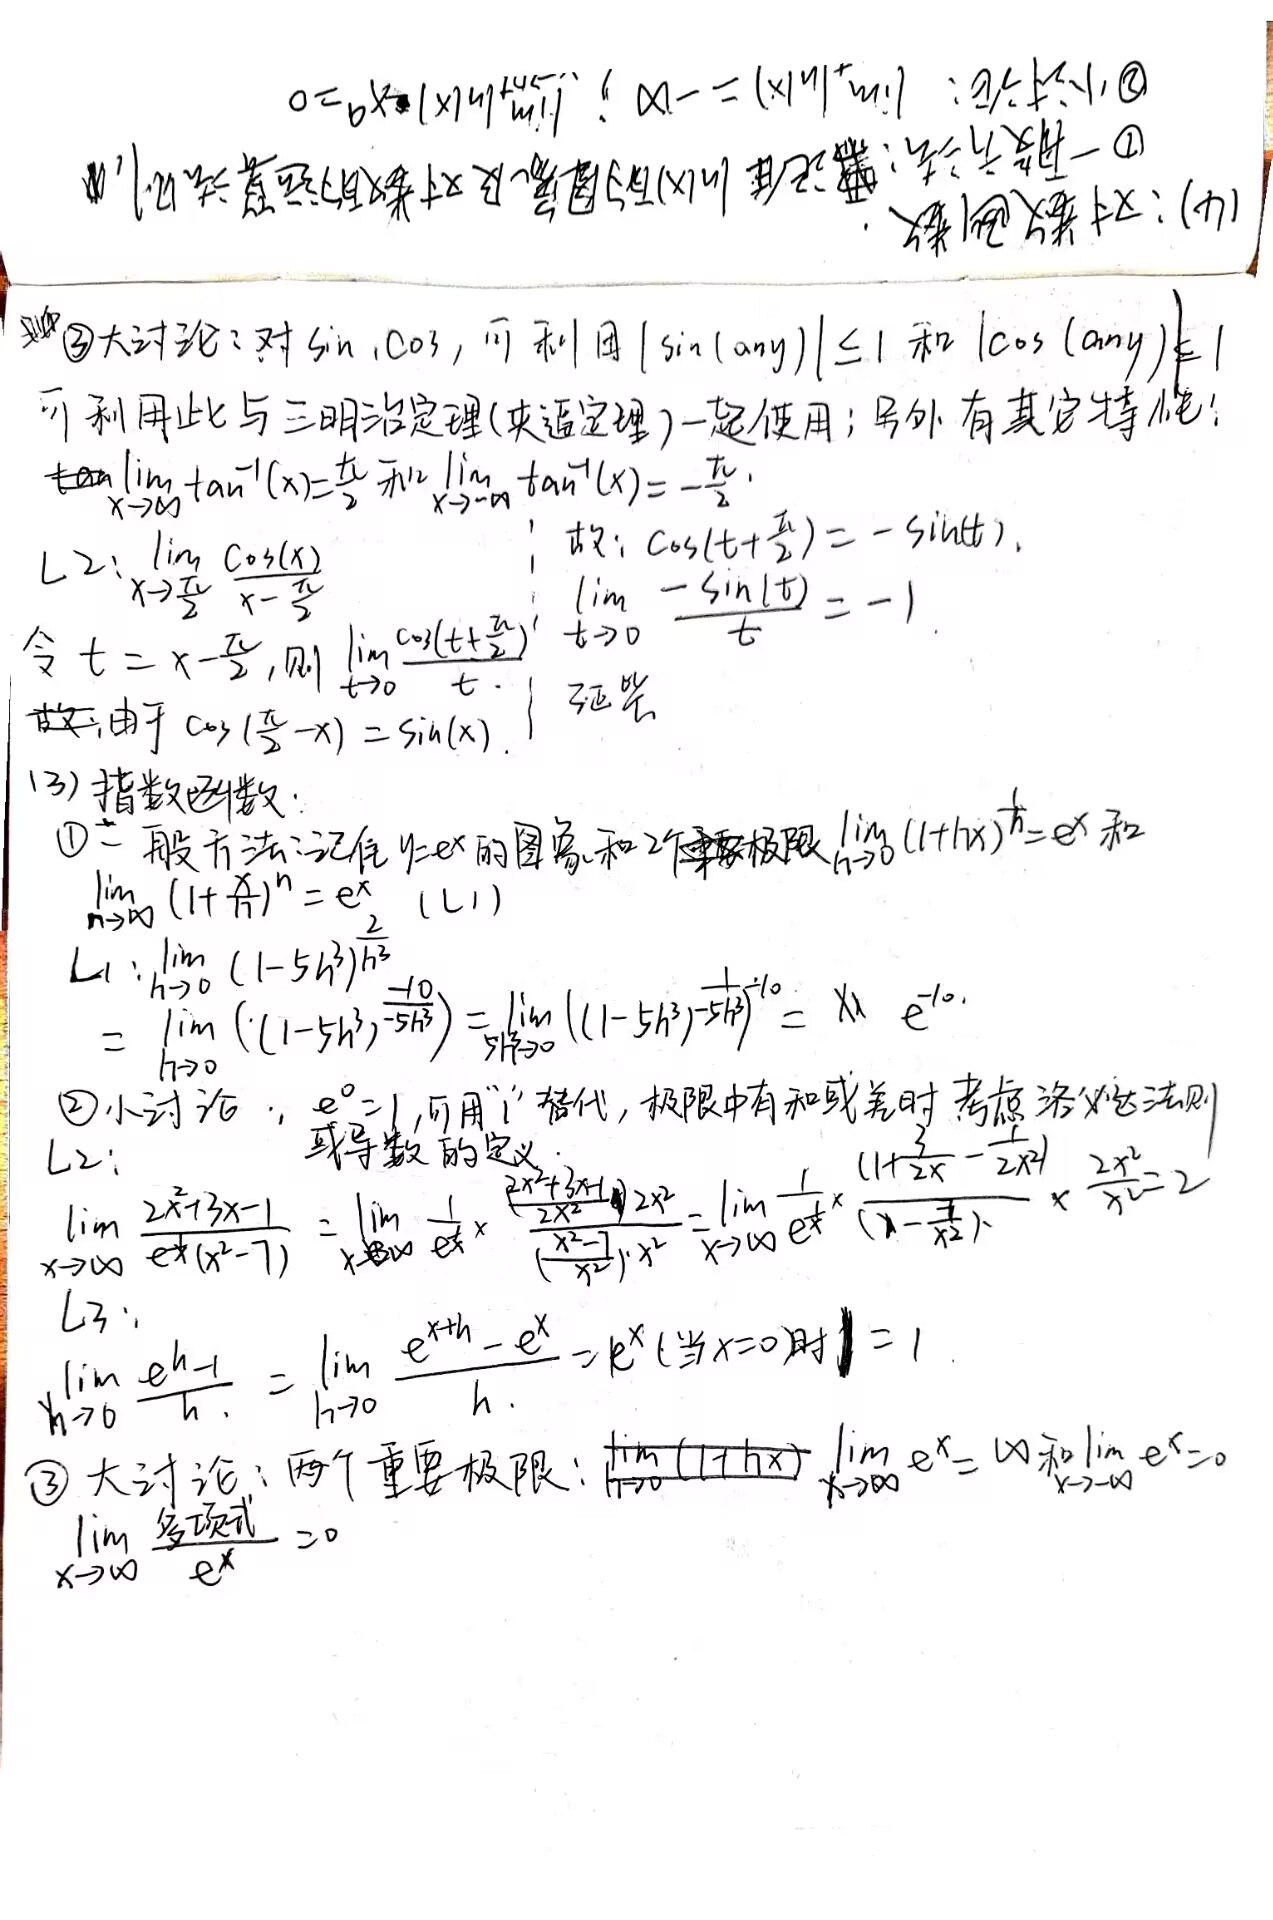 (4):对数函数.
①一般方法:记住 ln(x)的图象及对数的运算法则.
②小讨论: lim ln(x) = -∞ ; lim ln(x)·xᵃ=0
③大讨论:对 sin,cos,可利用|sin(any)|≤1 和 |cos(any)|≤1
可利用此与三明治定理(夹逼定理)一起使用;另外有其它特性:
lim x→∞ tan⁻¹(x)=π/2 和 lim x→-∞ tan⁻¹(x)=-π/2.
L2: lim x→π/2 cos(x)/(x-π/2)
令 t = x-π/2,则 lim t→0 cos(t+π/2)/t.
由于 cos(π/2-x) = sin(x).
故: cos(t+π/2) = -sin(t).
lim t→0 -sin(t)/t = -1.
证毕
(3)指数函数:
①一般方法:记住 y=eˣ的图象和2个极限 lim h→0 (1+hx)^(1/h)=eˣ 和
lim n→∞ (1+x/n)ⁿ=eˣ (L1)
L1: lim h→0 (1-5h³)^(2/h³)
= lim h→0 ((1-5h³)^(-10/-5h³)) = lim 5h³→0 ((1-5h³)^(1/-5h³))^-10 = e⁻¹⁰.
②小讨论: e⁰=1,可用"1"替代,极限中有和或差时考虑洛必达法则
或导数的定义.
L2:
lim x→∞ (2x²+3x-1)/(e^(1/x)(x²-7)) = lim x→∞ 1/e^(1/x) × ((2x²+3x-1)/2x²)·2x²/((x²-7)/x²)·x² = lim x→∞ 1/e^(1/x) × (1+3/2x-1/2x²)/(1-7/x²) × 2x²/x²=2
L3:
lim h→0 (eʰ-1)/h. = lim h→0 (eˣ⁺ʰ-eˣ)/h. = eˣ(当x=0)时 = 1.
③大讨论:两个重要极限: lim x→∞ eˣ=∞和 lim x→-∞ eˣ=0
lim x→∞ 多项式/eˣ =0